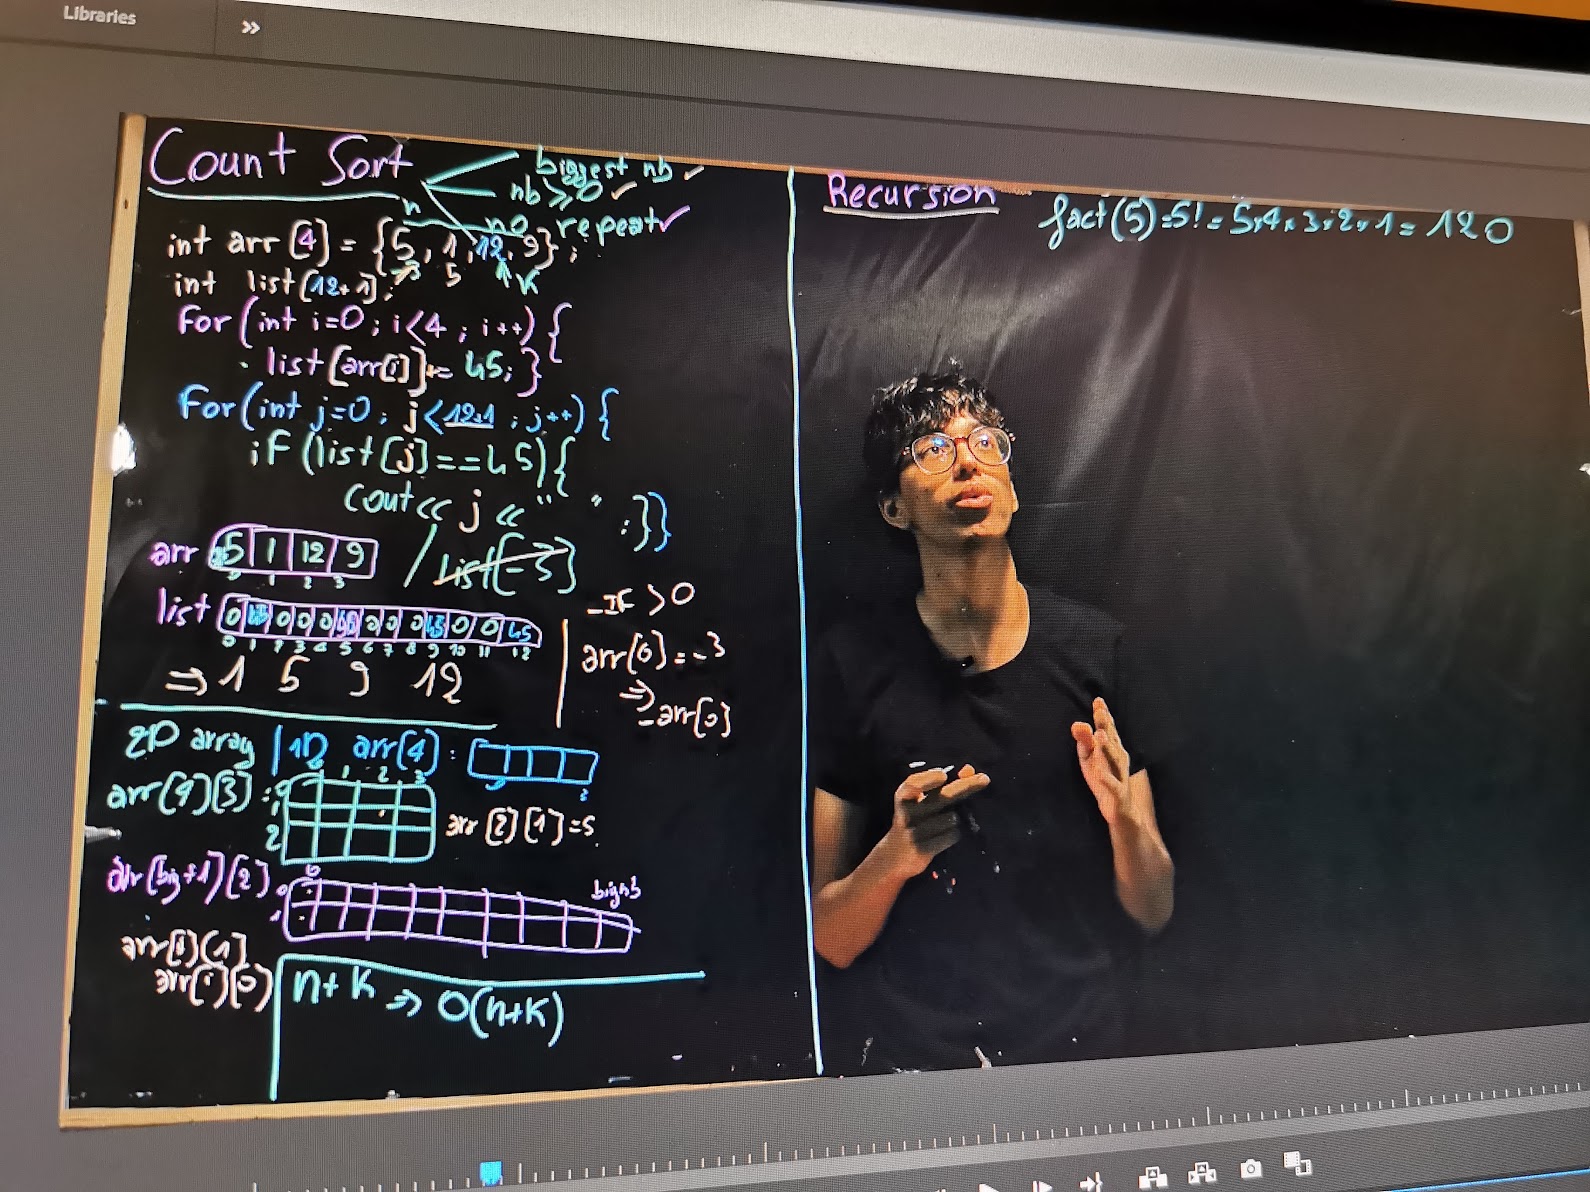 Libraries
»
Count Sort
biggest nb ✓
nb ≥ 0 ✓
no repeat ✓
n
int arr [4] = {5, 1, 12, 9};
5
K
int list[12+1];
For (int i=0; i<4; i++) {
list[arr[i]] = 45; }
For (int j=0; j<12+1; j++) {
if (list[j]==45) {
cout << j << " " ; }}
arr 5 1 12 9
0 1 2 3
/ list[-3]
list 0 45 0 0 0 45 0 0 0 45 0 0 45
0 1 2 3 4 5 6 7 8 9 10 11 12
⇒ 1 5 9 12
_IF > 0
arr[0] = -3
⇒ -arr[0]
2D array | 1D arr[4] :
0 3
arr[4][3] :
0 1 2 3
0
1
2
arr[2][1] = 5
arr[big+1][2]
0
0
1
big nb
arr[i][1]
arr[i][0]
n+K ⇒ O(n+K)
Recursion
fact(5)=5! = 5×4×3×2×1 = 120